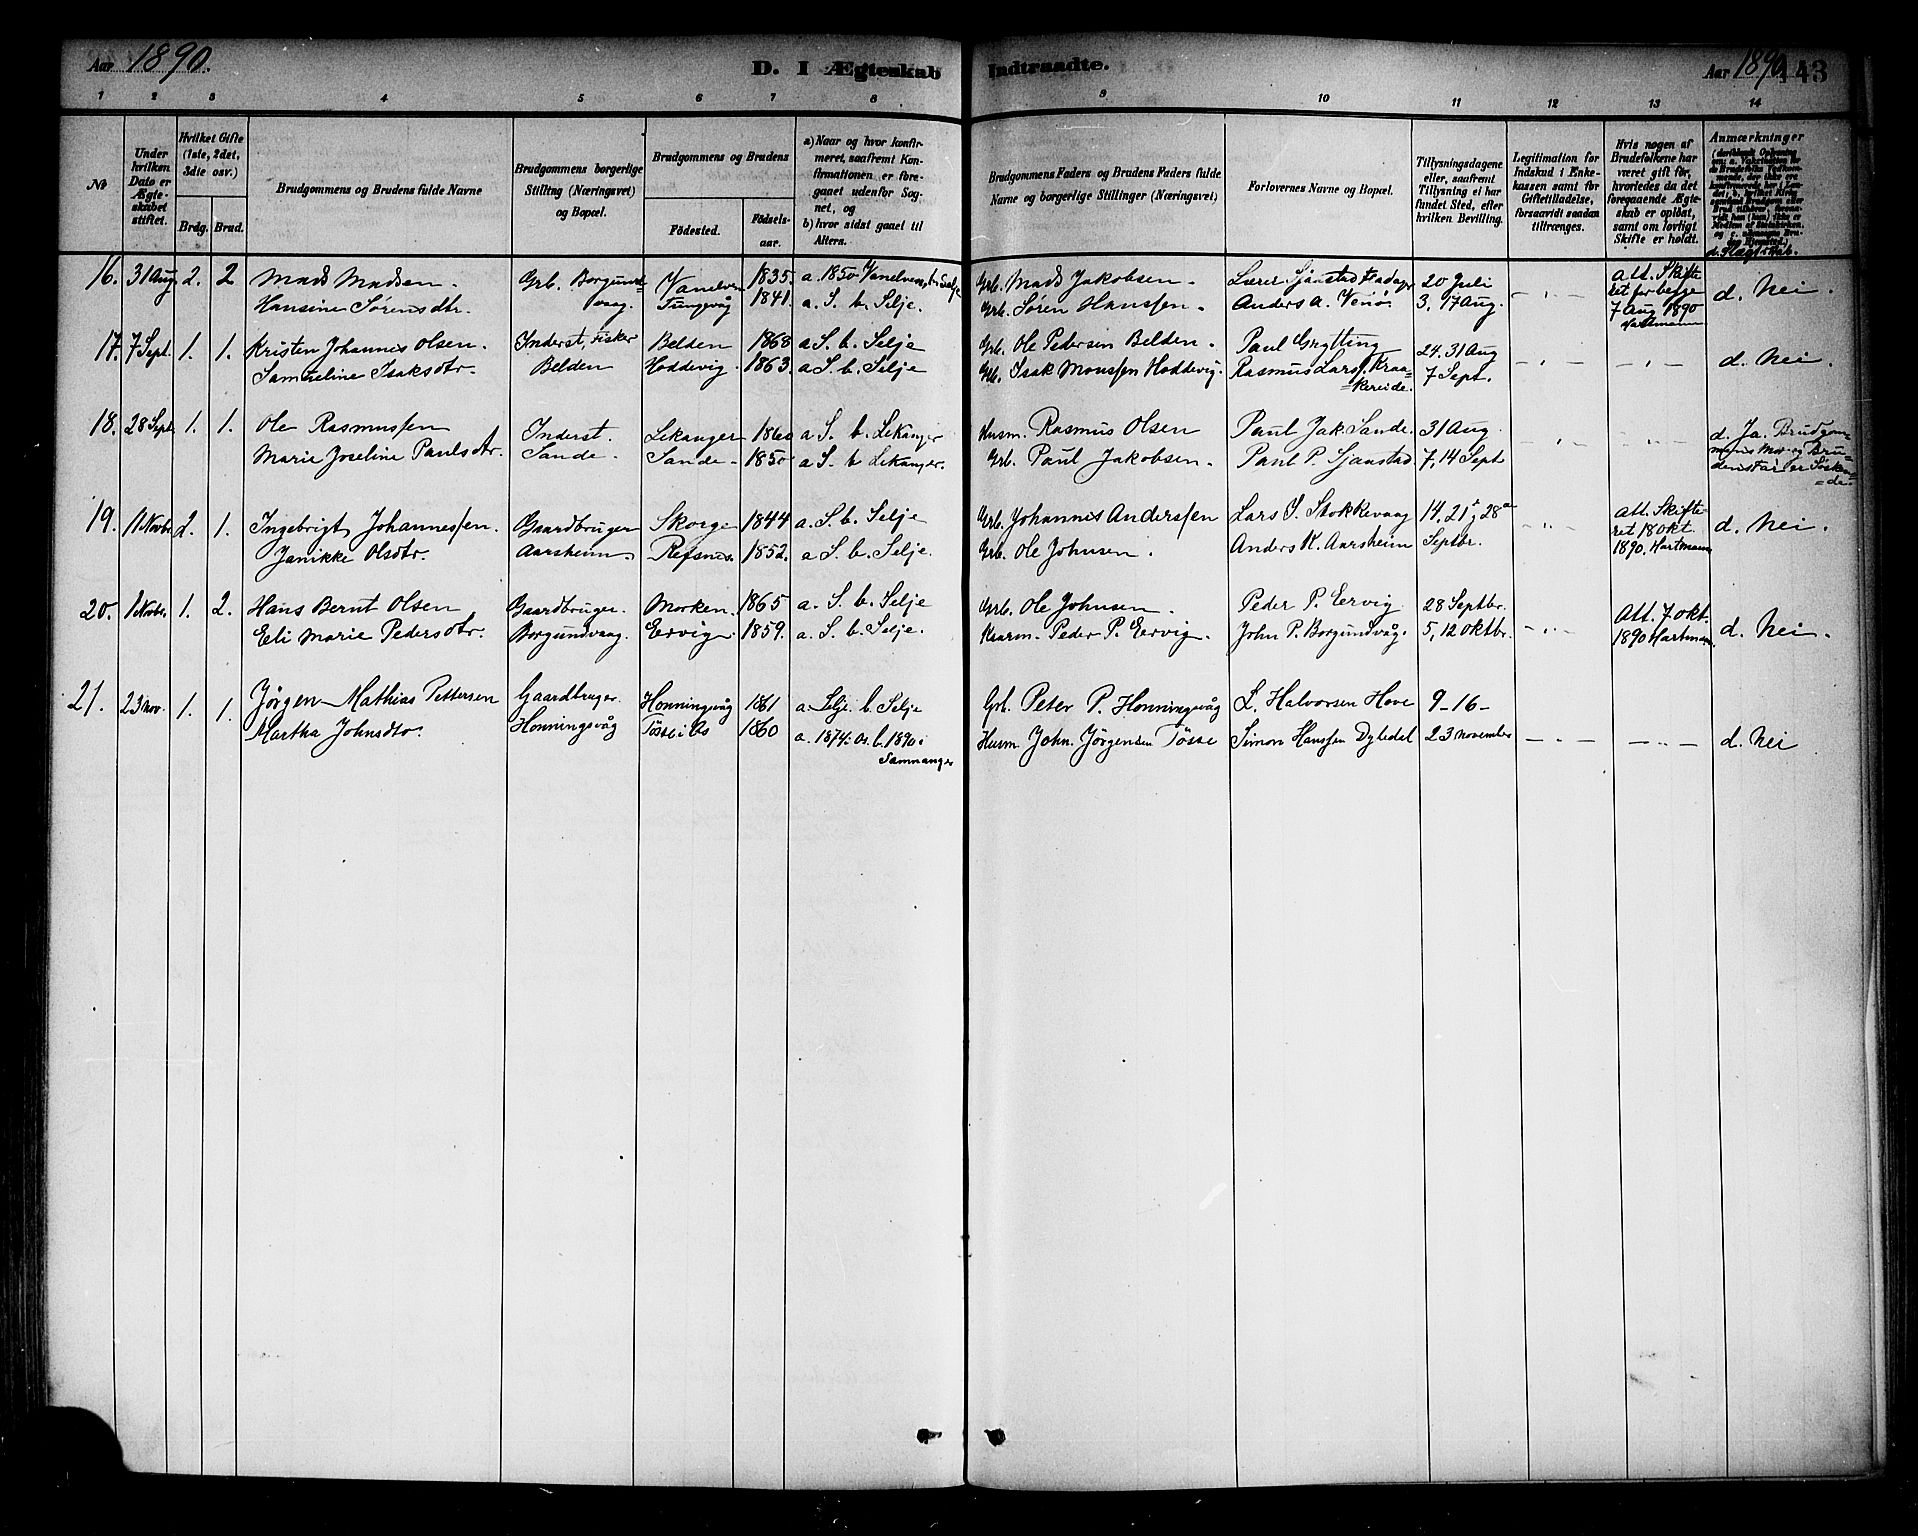 Aar 1890.
D. I Ægteskab Indtraadte.
Aar 1890. 143
1 2 3 4 5 6 7 8 9 10 11 12 13 14
№
Under hvilken Dato er Ægteskabet stiftet.
Hvilket Gifte (1ste, 2det, 3die osv.)
Brdg. Brud.
Brudgommens og Brudens fulde Navne
Brudgommens borgerlige Stilling (Næringsvei) og Bopæl.
Brudgommens og Brudens
Födested.
Födselsaar.
a) Naar og hvor konfirmeret, saafremt Konfirmationen er foregaaet udenfor Sognet, og
b) hvor sidst gaaet til Alters.
Brudgommens Faders og Brudens Faders fulde Navne og borgerlige Stillinger (Næringsvei)
Forlovernes Navne og Bopæl.
Tillysningsdagene eller, saafremt Tillysning ei har fundet Sted, efter hvilken Bevilling.
Legitimation for Indskud i Enkekassen samt for Giftetilladelse, forsaavidt saadan tiltrænges.
Hvis nogen af Brudefolkene har været gift før, hvorledes da det foregaaende Ægteskab er oplöst, samt om lovligt Skifte er holdt.
Anmærkninger
d. Slægtskab.
16. 31 Aug 2. 2 Mads Madsen. Grb. Borgund- Vanelven 1835. a. 1850 Vanelven, b. Selje Grb. Mads Jakobsen. 20 Juli Att. Skifte
Hansine Sørensdtr. vaag. 1841. a. S. b. Selje. Grb. Søren Hanssen. Anders A. 3, 17 Aug. - " - ret for begge d. Nei.
7 Aug 1890
Hartmann
17. 7 Sept. 1. 1. Kristen Johannes Olsen. Inderst, fisker Belden 1868 a S. b. Selje Grb. Ole Pedersen Belden. Paul Grytting 24. 31 Aug
Samueline Isaksdtr. Belden Hoddevig. 1863. a S. b. Selje Grb. Isak Monssen Hoddevig. Rasmus Lars. Kraa- 7 Sept. - " - - " - d. Nei.
=kereide.
18. 28 Sept. 1. 1. Ole Rasmussen Inderst. Lekanger 1860 a S. b. Lekanger Husm. Rasmus Olsen Paul Jak Sande. 31 Aug. d. Ja. Brudgom-
Marie Joseline Paulsdtr. Sande. Sande. 1850 a S. b Lekanger. Grb. Paul Jakobsen. Paul P. Sjaastad 7, 14 Sept - " - - " - mens Mor og Bru-
dens Far er Søsken-
=de.
19. 1 Novbr. 2. 1. Ingebrigt Johannessen. Gaardbruger Skorge 1844 a. S. b. Selje Grb. Johannis Anderssen Lars S. Stokkevaag 14, 21, 28de Att. Skifte-
Janikke Olsdtr. Aarsheim Refsnes. 1852. a S. b. Selje. Grb. Ole Johnsen. Anders K. Aarsheim Septbr. - " - ret 18 Okt. d. Nei.
1890. Hartmann
20. 1 Novbr. 1. 2. Hans Bernt Olsen Gaardbruger. Morken. 1865 a. S. b. Selje Grb. Ole Johnsen. Peder P. Eervig. 28 Septbr. Att. 7 Okt.
Eli Marie Pedersdtr. Borgundvaag. Eervig. 1859. a. S. b. Selje. Kaarm. Peder P. Eervig. John P. Borgundvåg. 5, 12 Oktbr. - " - 1890 Hartmann. d. Nei.
21. 23 nov. 1. 1. Jørgen Mathias Pettersen Gaardbruger. Honningsvåg 1861 a. Selje. b. Selje Grb. Peter P. Honningsvåg L. Halvorsen Hove 9 - 16 -
Martha Johnsdtr. Honningsvåg Tøsse i Os 1860 a. 1874 i Os. b. 1890 i Husm. John. Jørgensen Tøsse Simon Hanssen Dybedal 23 november - " - - " - d. Nei
Samnanger